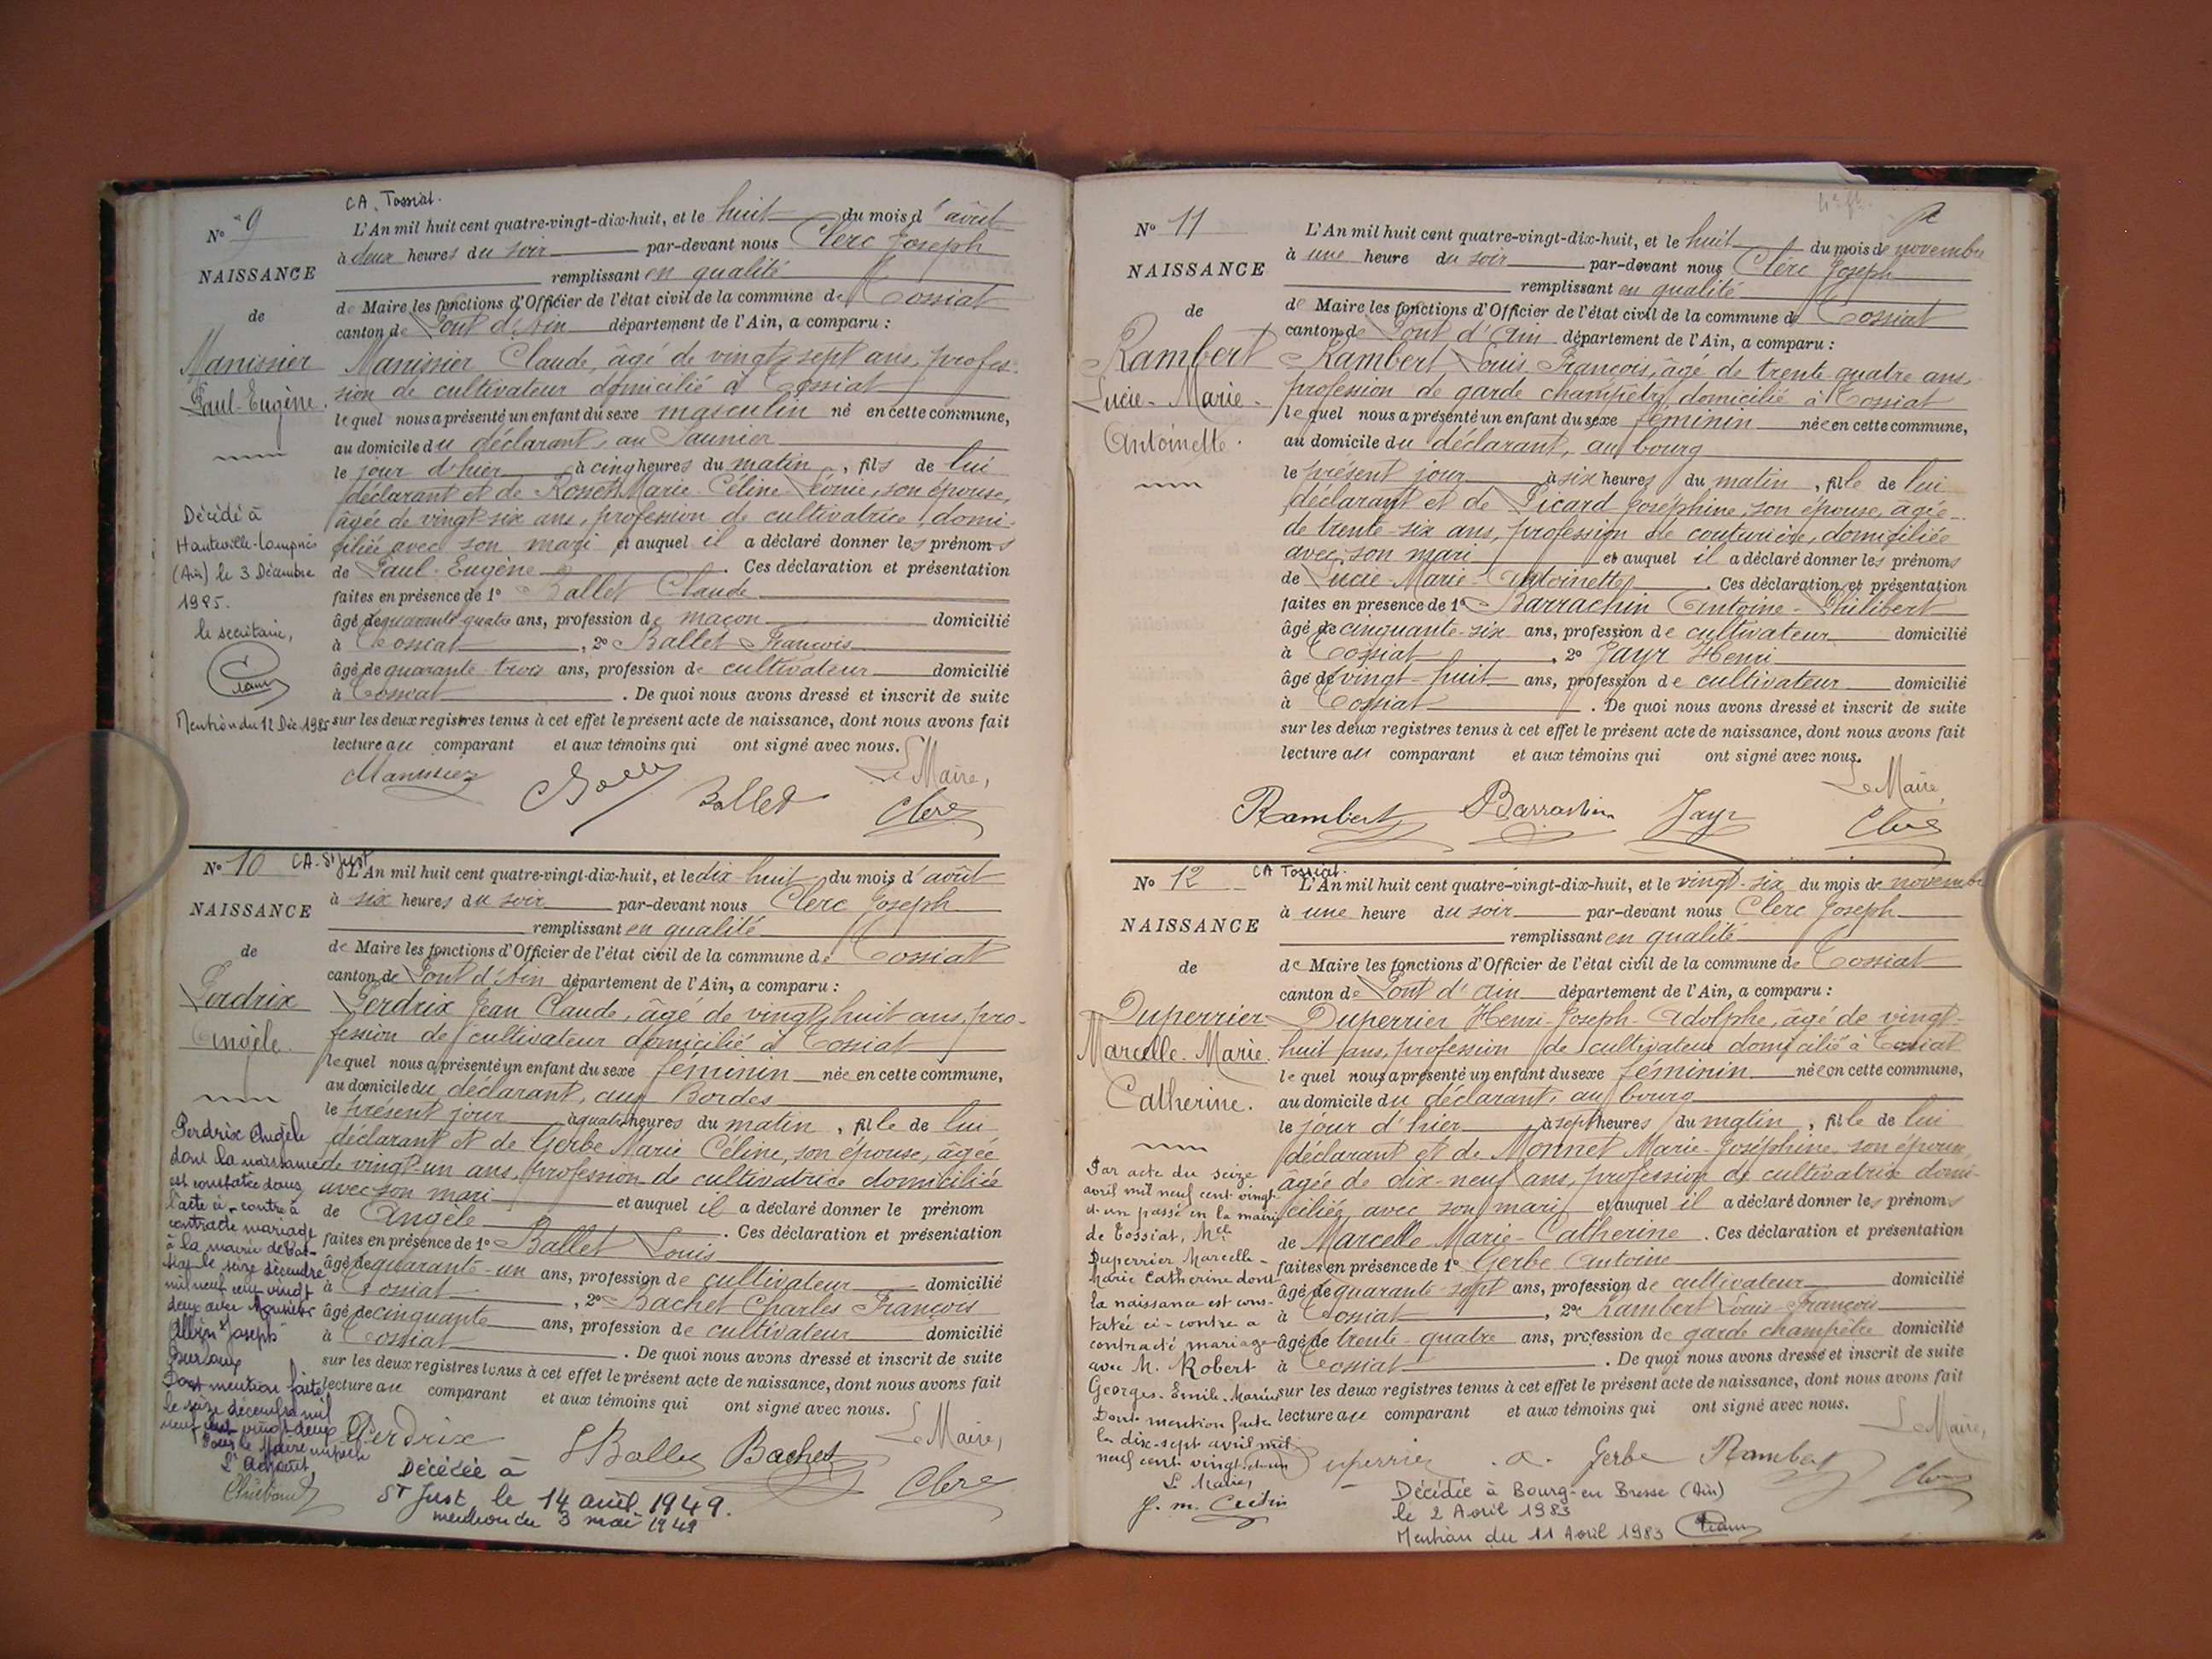 CA. Tossiat.
N° 9
NAISSANCE
de
Manissier
Paul-Eugène.
L'An mil huit cent quatre-vingt-dix-huit, et le huit du mois d'août
à deux heures du soir par-devant nous Clerc Joseph
remplissant en qualité
de Maire les fonctions d'Officier de l'état civil de la commune de Tossiat
canton de Pont d'Ain département de l'Ain, a comparu :
Manissier Claude, âgé de vingt-sept ans, profes-
sion de cultivateur domicilié à Tossiat
lequel nous a présenté un enfant du sexe masculin né en cette commune,
au domicile du déclarant, au Saunier
le jour d'hier à cinq heures du matin, fils de lui
déclarant et de Rosset Marie Céline Léonie, son épouse,
âgée de vingt-six ans, profession de cultivatrice, domi-
ciliée avec son mari et auquel il a déclaré donner les prénoms
de Paul-Eugène. Ces déclaration et présentation
faites en présence de 1° Ballet Claude
âgé de quarante quatre ans, profession de maçon domicilié
à Tossiat, 2° Ballet François
âgé de quarante-trois ans, profession de cultivateur domicilié
à Tossiat. De quoi nous avons dressé et inscrit de suite
sur les deux registres tenus à cet effet le présent acte de naissance, dont nous avons fait
lecture au comparant et aux témoins qui ont signé avec nous.
Le Maire,
Manissier Ballet Clerc
Décédé à
Hauteville-Lompnès
(Ain) le 3 Décembre
1985.
le secrétaire,
Mention du 12 Déc. 1985
N° 10
CA-St Just
NAISSANCE
de
Perdrix
Angèle.
L'An mil huit cent quatre-vingt-dix-huit, et le dix-huit du mois d'août
à six heures du soir par-devant nous Clerc Joseph
remplissant en qualité
de Maire les fonctions d'Officier de l'état civil de la commune de Tossiat
canton de Pont d'Ain département de l'Ain, a comparu :
Perdrix Jean Claude, âgé de vingt-huit ans, pro-
fession de cultivateur domicilié à Tossiat
lequel nous a présenté un enfant du sexe féminin née en cette commune,
au domicile du déclarant, aux Bordes
le présent jour à quatre heures du matin, fille de lui
déclarant et de Gerbe Marie Céline, son épouse, âgée
de vingt-un ans, profession de cultivatrice domiciliée
avec son mari et auquel il a déclaré donner le prénom
de Angèle. Ces déclaration et présentation
faites en présence de 1° Ballet Louis
âgé de quarante-un ans, profession de cultivateur domicilié
à Tossiat, 2° Bachet Charles François
âgé de cinquante ans, profession de cultivateur domicilié
à Tossiat. De quoi nous avons dressé et inscrit de suite
sur les deux registres tenus à cet effet le présent acte de naissance, dont nous avons fait
lecture au comparant et aux témoins qui ont signé avec nous.
Le Maire,
Perdrix Bachet Clerc
Perdrix Angèle
dont la naissance
est constatée dans
l'acte ci-contre à
contracté mariage
à la mairie de Tos-
siat le seize décembre
mil neuf cent vingt
deux avec Monsieur
Albin Joseph
Dont mention faite
le seize décembre mil
neuf cent vingt-deux
Pour le Maire empêché
L'Adjoint
Décédée à
St Just, le 14 avril 1949.
mention du 3 mai 1949
N° 11
NAISSANCE
de
Rambert
Lucie-Marie-
Antoinette.
L'An mil huit cent quatre-vingt-dix-huit, et le huit du mois de novembre
à une heure du soir par-devant nous Clerc Joseph
remplissant en qualité
de Maire les fonctions d'Officier de l'état civil de la commune de Tossiat
canton de Pont d'Ain département de l'Ain, a comparu :
Rambert Louis François, âgé de trente quatre ans,
profession de garde champêtre, domicilié à Tossiat
lequel nous a présenté un enfant du sexe féminin née en cette commune,
au domicile du déclarant, au bourg
le présent jour à six heures du matin, fille de lui
déclarant et de Picard Joséphine, son épouse, âgée
de trente-six ans, profession de couturière, domiciliée
avec son mari et auquel il a déclaré donner les prénoms
de Lucie-Marie-Antoinette. Ces déclaration et présentation
faites en présence de 1° Barrachin Antoine-Philibert
âgé de cinquante-six ans, profession de cultivateur domicilié
à Tossiat, 2° Jayr Henri
âgé de vingt-huit ans, profession de cultivateur domicilié
à Tossiat. De quoi nous avons dressé et inscrit de suite
sur les deux registres tenus à cet effet le présent acte de naissance, dont nous avons fait
lecture au comparant et aux témoins qui ont signé avec nous.
Le Maire,
Rambert Barrachin Jayr Clerc
N° 12
CA Tossiat.
NAISSANCE
de
Duperrier
Marcelle-Marie
Catherine.
L'An mil huit cent quatre-vingt-dix-huit, et le vingt-six du mois de novembre
à une heure du soir par-devant nous Clerc Joseph
remplissant en qualité
de Maire les fonctions d'Officier de l'état civil de la commune de Tossiat
canton de Pont d'Ain département de l'Ain, a comparu :
Duperrier Henri-Joseph-Adolphe, âgé de vingt-
huit ans, profession de cultivateur domicilié à Tossiat
lequel nous a présenté un enfant du sexe féminin née en cette commune,
au domicile du déclarant, au bourg
le jour d'hier à sept heures du matin, fille de lui
déclarant et de Monnet Marie-Joséphine, son épouse,
âgée de dix-neuf ans, profession de cultivatrice domi-
ciliée avec son mari et auquel il a déclaré donner les prénoms
de Marcelle Marie-Catherine. Ces déclaration et présentation
faites en présence de 1° Gerbe Antoine
âgé de quarante-sept ans, profession de cultivateur domicilié
à Tossiat, 2° Rambert Louis-François
âgé de trente-quatre ans, profession de garde champêtre domicilié
à Tossiat. De quoi nous avons dressé et inscrit de suite
sur les deux registres tenus à cet effet le présent acte de naissance, dont nous avons fait
lecture au comparant et aux témoins qui ont signé avec nous.
Le Maire,
Duperrier a. Gerbe Rambert Clerc
Par acte du seize
avril mil neuf cent vingt-
et-un passé en la mairie
de Tossiat, Melle
Duperrier Marcelle-
Marie Catherine dont
la naissance est cons-
tatée ci-contre a
contracté mariage
avec M. Robert
Georges-Emile-Marius
Dont mention faite
le dix-sept avril mil
neuf cent vingt-et-un
Le Maire,
Décédée à Bourg-en Bresse (Ain)
le 2 Avril 1983
Mention du 11 Avril 1983